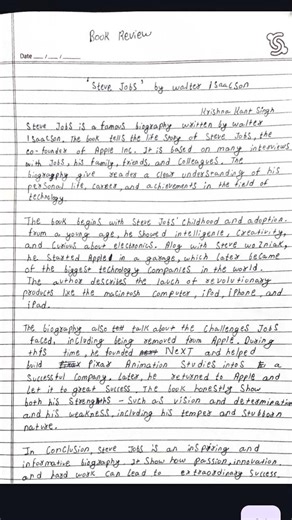 Book Review
Date __/__/__
'Steve Jobs' by walter Isaacson
Krishna Kant Singh
Steve Jobs is a famous biography written by walter
Isaacson. The book tells the life story of Steve Jobs, the
co-founder of Apple Inc. It is based on many interviews
with Jobs, his family, friends, and colleagues. The
biography give reader a clear understanding of his
personal life, career, and achievements in the field of
technology.
The book begins with Steve Jobs' childhood and adoption.
From a young age, he showed intelligenle, Creativity,
and Curious about electronics. Alog with Steve wozniak,
he Started Apple in a garage, which later became
of the biggest technology Companies in the world.
The author describes the lauch of revolutionary
products like the macintosh Computer, iPod, iPhone, and
iPad.
The biography also talk about the Challenges Jobs
faced, including being removed from Apple. During
this time, he founded NeXT and helped
build Pixar Animation Studies into a
Successful Company. Later, he returned to Apple and
let it to great Success. The book honestly Show
both his Strengths - Such as vision and determination
and his weakness, including his temper and Stubborn
nature.
In Conclusion, Steve Jobs is an inspiring and
informative biography. It Show how passion, innovation,
and hard work can lead to extraordinary Success.